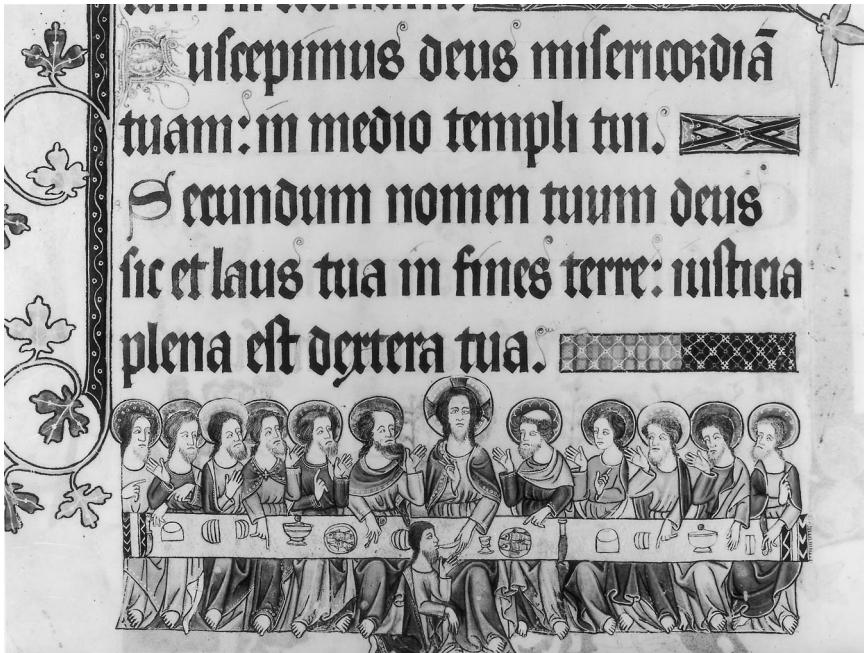 eam in eternum.
Suscepimus deus misericordiā
tuam: in medio templi tui.
Secundum nomen tuum deus
sic et laus tua in fines terre: iusticia
plena est dextera tua.